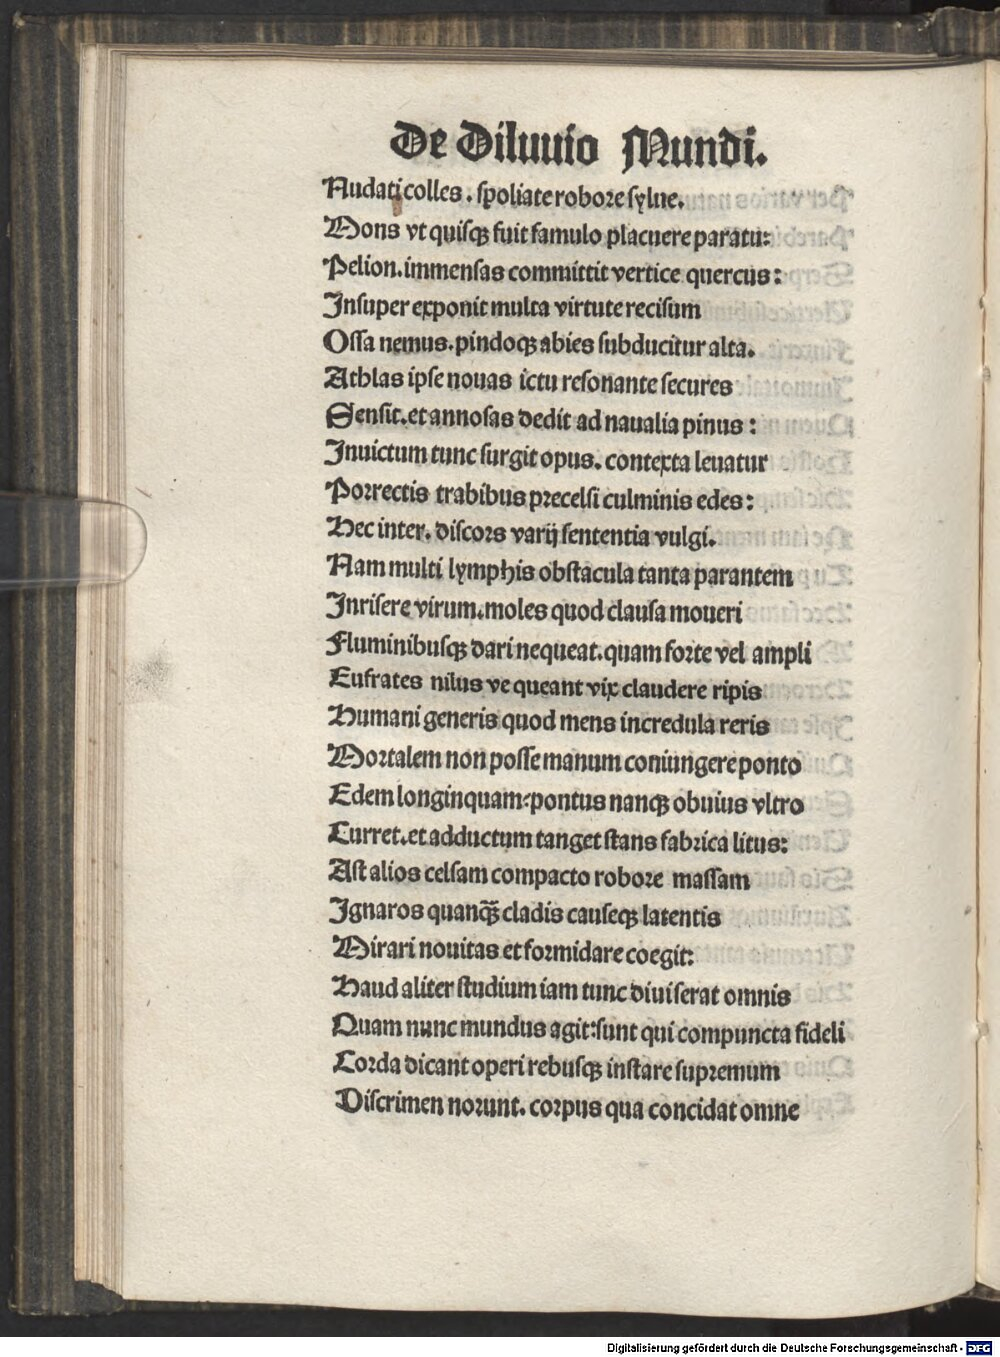 De Diluuio Mundi.
Nudati colles. spoliate robore sylue.
Mons vt quisqꝫ fuit famulo placuere paratu:
Pelion. immensas committit vertice quercus:
Insuper exponit multa virtute recisum
Ossa nemus. pindoqꝫ abies subducitur alta.
Athlas ipse nouas ictu resonante secures
Sensit. et annosas dedit ad naualia pinus:
Inuictum tunc surgit opus. contexta leuatur
Porrectis trabibus precelsi culminis edes:
Hec inter. discors varij sententia vulgi.
Nam multi lymphis obstacula tanta parantem
Inrisere virum. moles quod clausa moueri
Fluminibusqꝫ dari nequeat. quam forte vel ampli
Eufrates nilus ve queant vix claudere ripis
Humani generis quod mens incredula reris
Mortalem non posse manum coniungere ponto
Edem longinquam: pontus nanqꝫ obuius vltro
Curret. et adductum tanget stans fabrica litus:
Ast alios celsam compacto robore massam
Ignaros quanqꝫ̃ cladis causeqꝫ latentis
Mirari nouitas et formidare coegit:
Haud aliter studium iam tunc diuiserat omnis
Quam nunc mundus agit: sunt qui compuncta fideli
Corda dicant operi rebusqꝫ instare supremum
Discrimen norunt. corpus qua concidat omne
Digitalisierung gefördert durch die Deutsche Forschungsgemeinschaft - DFG